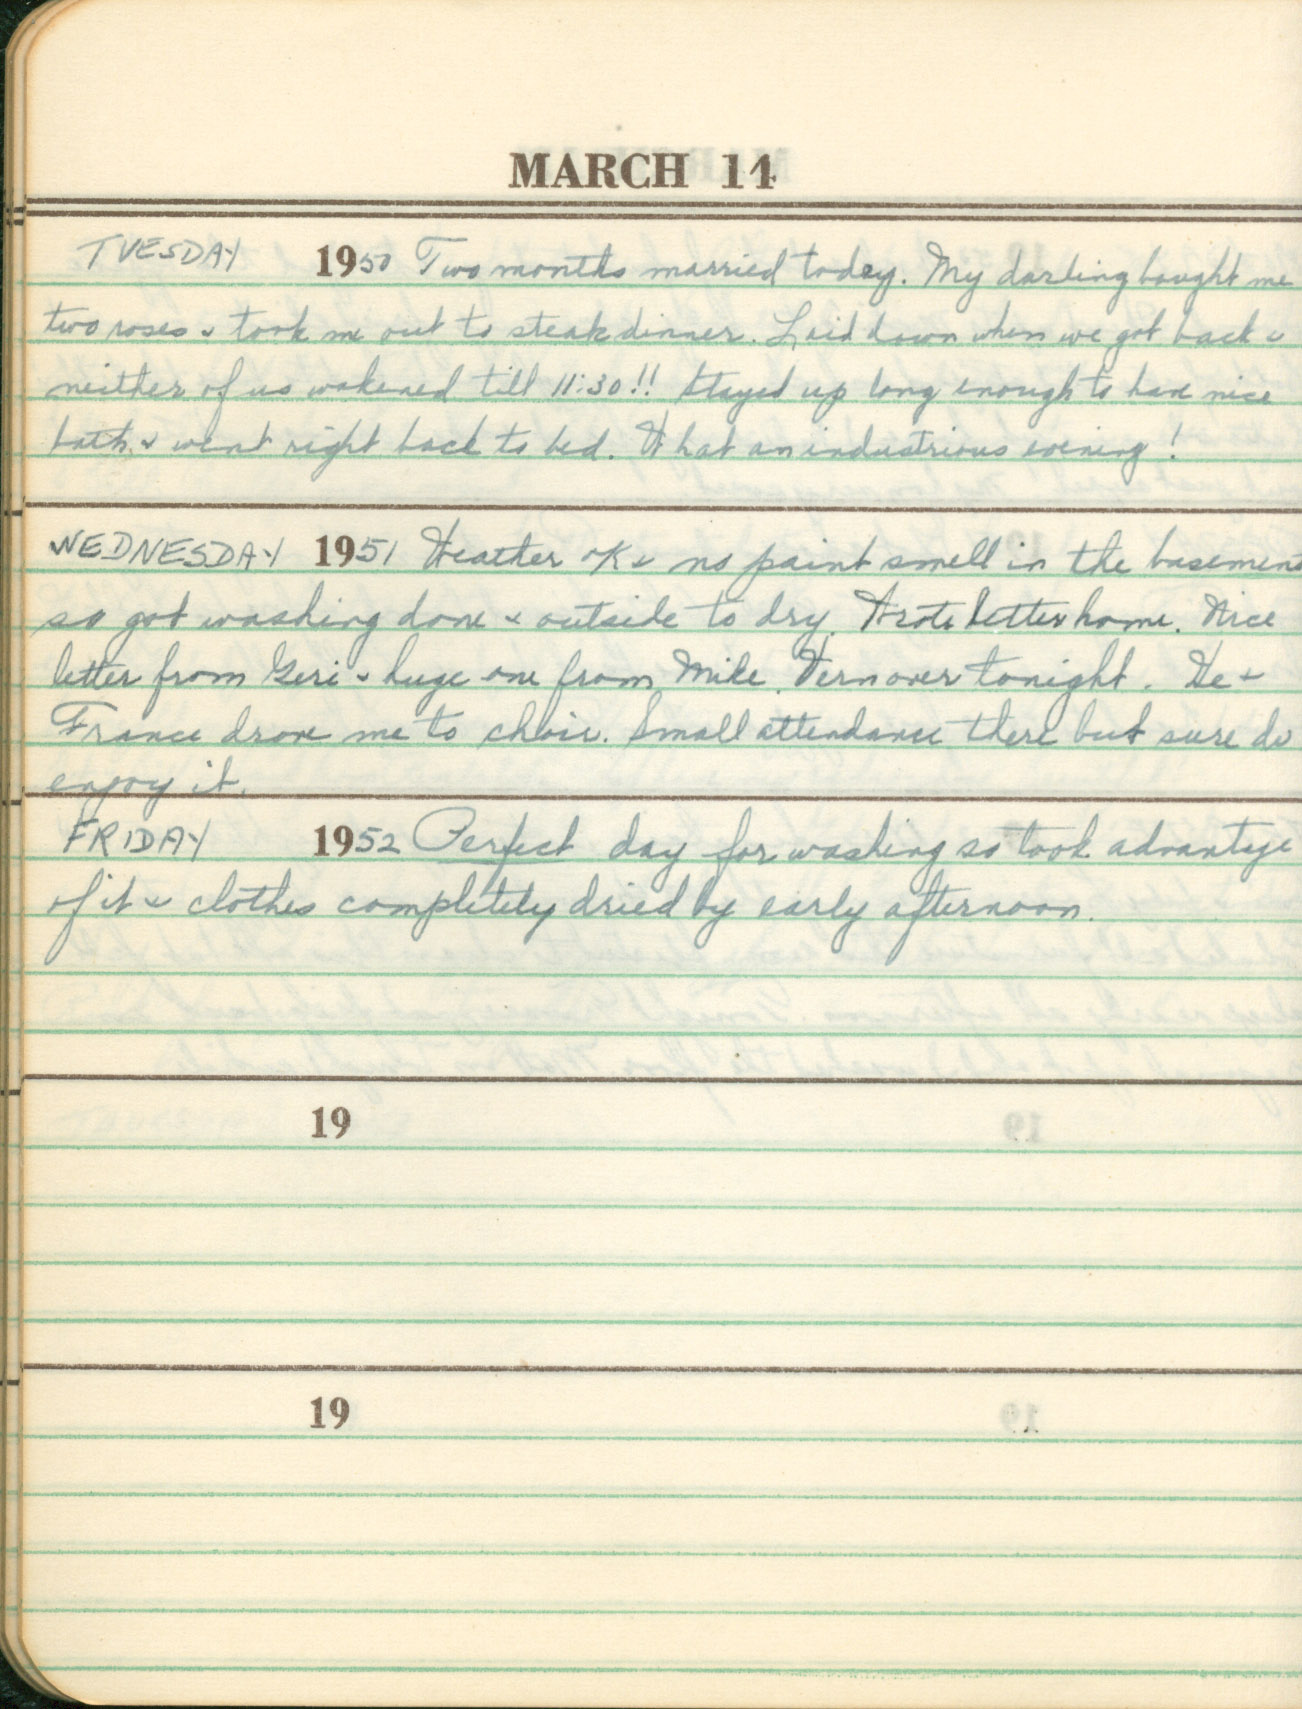 MARCH 14
TUESDAY 1950 Two months married today. My darling bought me
two roses & took me out to steak dinner. Laid down when we got back &
neither of us wakened till 11:30!! Stayed up long enough to have nice
bath & went right back to bed. What an industrious evening!
WEDNESDAY 1951 Weather OK & no paint smell in the basement
so got washing done & outside to dry. Wrote letter home. Nice
letter from Geri & huge one from Mike. Vern over tonight. He &
France drove me to choir. Small attendance there but sure do
enjoy it.
FRIDAY 1952 Perfect day for washing so took advantage
of it & clothes completely dried by early afternoon.
19
19